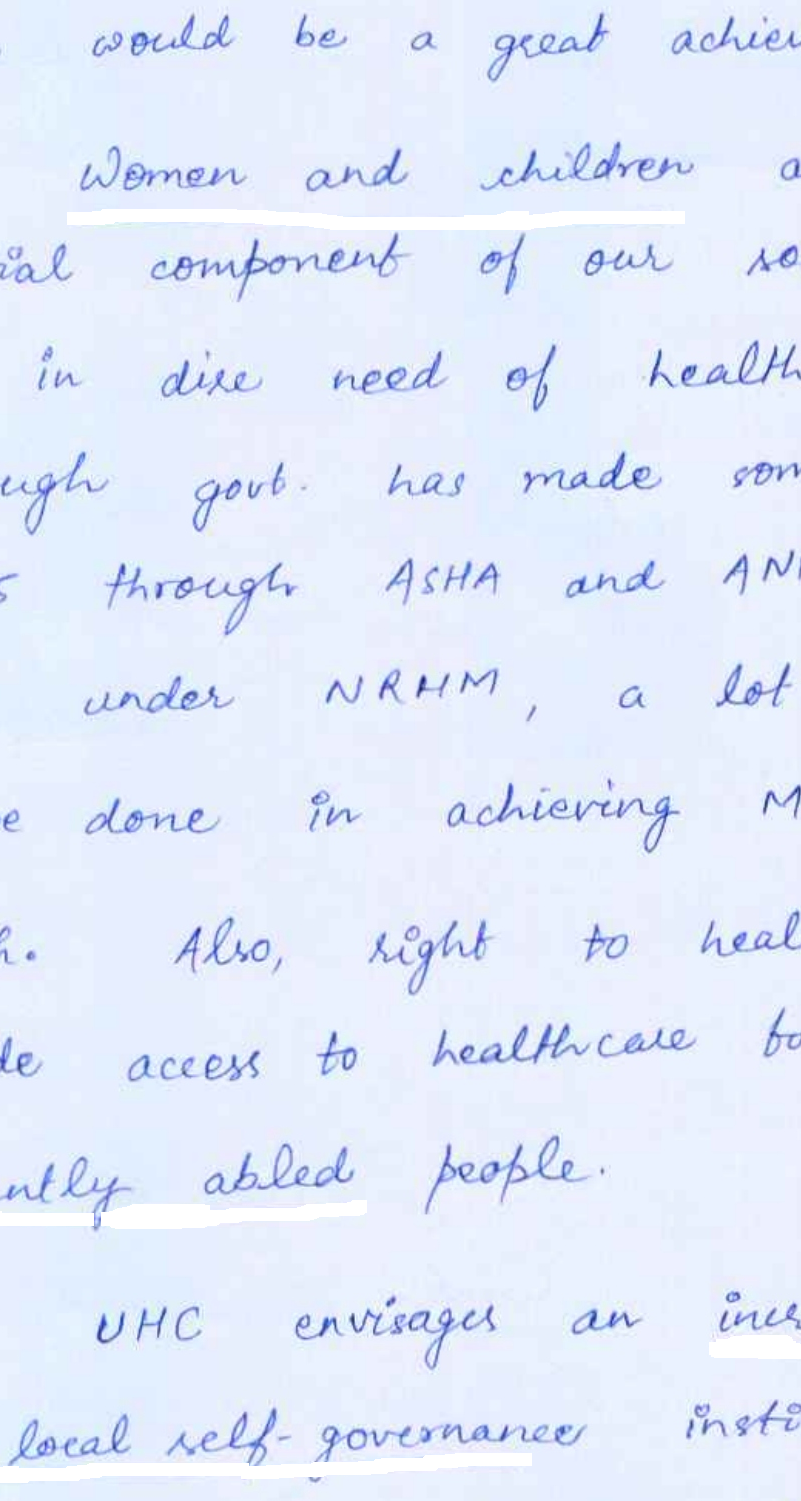 would be a great achiev
Women and children a
ial component of our so
in dire need of health
ugh govt. has made som
s through ASHA and AN
under NRHM, a lot
e done in achieving M
h. Also, right to heal
de access to healthcare to
ntly abled people.
UHC envisages an incr
local self-governance insti